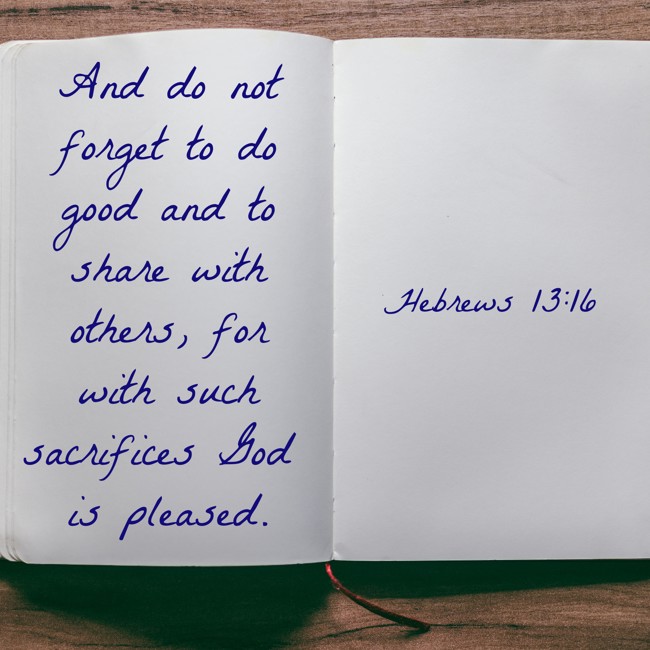 And do not
forget to do
good and to
share with
others, for
with such
sacrifices God
is pleased.
Hebrews 13:16